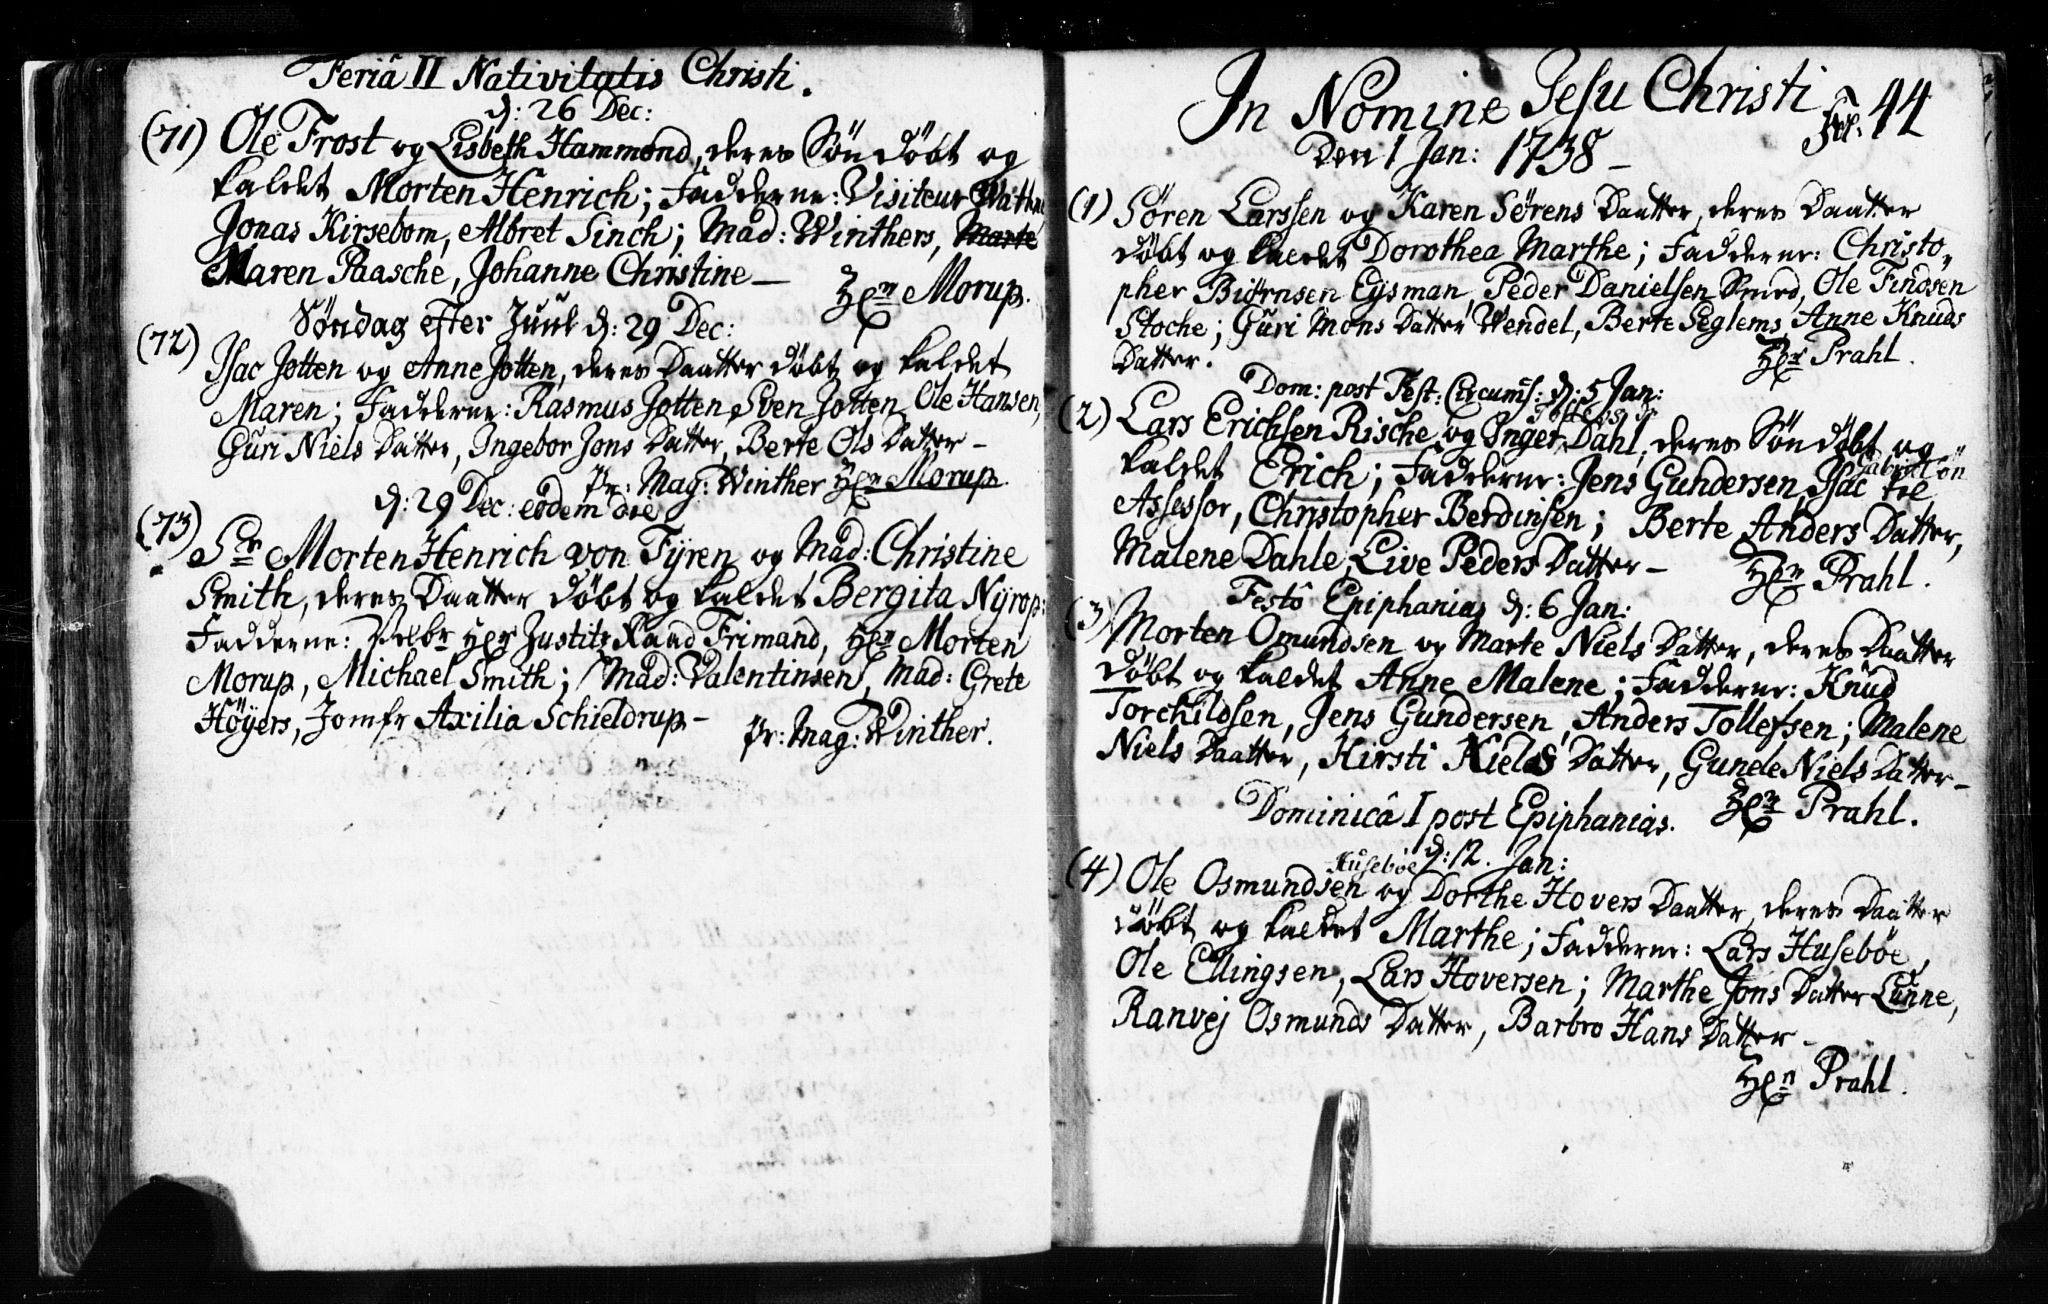 Feriâ II Nativitatis Christi.
d: 26 Dec:
(71) Ole Frost og Lisbeth Hammond, deres Søn døbt og
kaldet Morten Henrich; Fadderne: Visiteur
Jonas Kirsebom, Albret Sinch; Mad: Winthers, Marte
Maren Paasche, Johanne Christine —
Hr Morup.
Søndag efter Juul d: 29 Dec:
(72) Isac Jotten og Anne Jotten, deres Daatter døbt og kaldet
Maren; Fadderne: Rasmus Jotten, Sven Jotten, Ole Hansen,
Guri Niels Datter, Ingebor Jons Datter, Berte Ols Datter —
Pr: Mag: Winther Hr Morup.
d: 29 Dec: eodem die
(73) Sr Morten Henrich von Fyren og Mad: Christine
Smith, deres Daatter døbt og kaldet Bergita Nyrop:
Fadderne: Velbr Hr Justits Raad Frimand, Hr Morten
Morup, Michael Smith; Mad: Valentinsen, Mad: Grete
Höyers, Jomfr Axilia Schieldrup —
Pr: Mag: Winther.
In Nomine Jesu Christi
Fol: 44
Den 1 Jan: 1738 —
(1) Søren Larssen og Karen Sørens Daatter, deres Daatter
døbt og kaldet Dorothea Marthe; Fadderne: Christo-
pher Biørnsen Eysman, Peder Danielsen Smed, Ole Findsen
Stoche; Guri Mons Datter Wendel, Berte Seglems, Anne Knuds
Datter.
Hr Prahl.
Dom: post Fest: Circums: d: 5 Jan:
(2) Lars Erichsen Rische og Inger Dahl, deres Søn døbt og
Gabriel Søn
kaldet Erich; Fadderne: Jens Gundersen, Isac til
Assessor, Christopher Berdinsen; Berte Anders Datter,
Malene Dahle, Live Peders Datter —
Hr Prahl.
Festô Epiphanias d: 6 Jan:
(3) Morten Omundsen og Marte Niels Datter, deres Daatter
døbt og kaldet Anne Malene; Fadderne: Knud
Torchildsen, Jens Gundersen, Anders Tollefsen; Malene
Niels Daatter, Kirsti Kields Datter, Gunele Niels Datter —
Hr Prahl.
Dominicâ I post Epiphanias.
d: 12. Jan:
Husebøe
(4) Ole Osmundsen og Dorthe Hovers Daatter, deres Daatter
døbt og kaldet Marthe; Fadderne: Lars Husebøe,
Ole Ellingsen, Lars Hoversen; Marthe Jons Datter Lunne,
Ranvej Osmunds Datter, Barbro Hans Datter —
Hr Prahl.